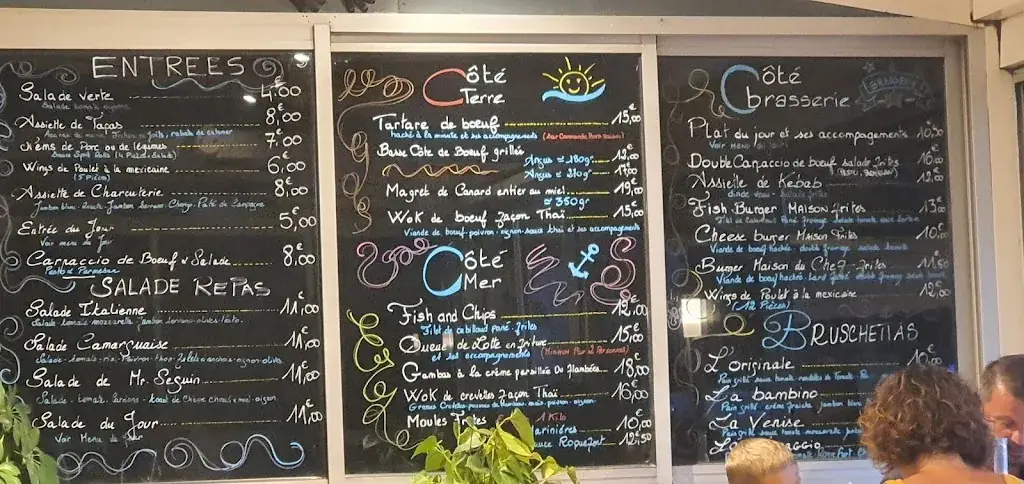 ENTREES
Salade verte 4,00
Salade tomate oignons
Assiette de Tapas 8,00€
Nems de Porc ou de légumes 7,00€
Sauce Salade (4 Pièces)
Wings de Poulet à la mexicaine 6,00€
(5 Pièces)
Assiette de Charcuterie 8,00€
Jambon blanc Rosette Jambon Serrano Chorizo Paté de Campagne
Entrée du Jour 5,00€
Voir menu du Jour
Carpaccio de Boeuf & Salade 8,00€
Pesto & Parmesan
SALADE REPAS
Salade Italienne 11,00€
Salade tomate mozzarella Jambon Serrano olives Pesto
Salade Camarguaise 11,00€
Salade riz Poivron thon anchois oignon olive
Salade de Mr Seguin 11,00€
Salade tomate toast de Chèvre chaud miel oignon
Salade du Jour 11,00€
Voir Menu du Jour
Côté Terre
Tartare de boeuf 15,00€
haché à la minute et ses accompagnements (Sur Commande Hors saison)
Basse Côte de Boeuf grillée Angus ≈ 180gr 12,00€
Angus ≈ 210gr 17,00€
Magret de Canard entier au miel 19,00€
≈ 350gr
Wok de boeuf façon Thaï 15,00€
Viande de boeuf poivron oignon sauce thaï et ses accompagnements
Côté Mer
Fish and Chips 12,00€
Filet de cabillaud pané frites
Queue de Lotte en friture 15,00€
et ses accompagnements (Minimum Pour 2 Personnes)
Gambas à la crème persillée Ou flambées 18,00€
Wok de crevettes façon Thaï 16,00€
Moules frites 1 Kilo
Marinières 10,00€
Sauce Roquefort 12,50€
Côté brasserie
Plat du jour et ses accompagnements 10,50
Voir Menu du Jour
Double Carpaccio de boeuf salade frites 16,00€
Assiette de Kebab 12,00€
Fish Burger Maison frites 13,00€
Filet de Cabillaud Pané fromage salade tomate
Cheese burger Maison frites 10,00€
Viande de boeuf haché double fromage salade tomate
Burger Maison du Chef frites 11,50€
Wings de Poulet à la mexicaine 12,00€
(12 Pièces)
BRUSCHETTAS
L'originale 10,00
Pain grillé sauce tomate
La bambino
Pain grillé crème fraîche jambon blanc
La Venise
Pain grillé sauce tomate mozzarella jambon